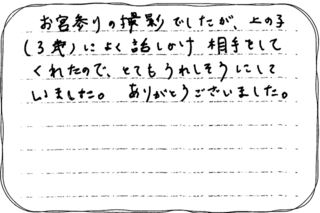 お宮参りの撮影でしたが、上の子
(3歳)によく話しかけ 相手をして
くれたので、とてもうれしそうにして
いました。 ありがとうございました。